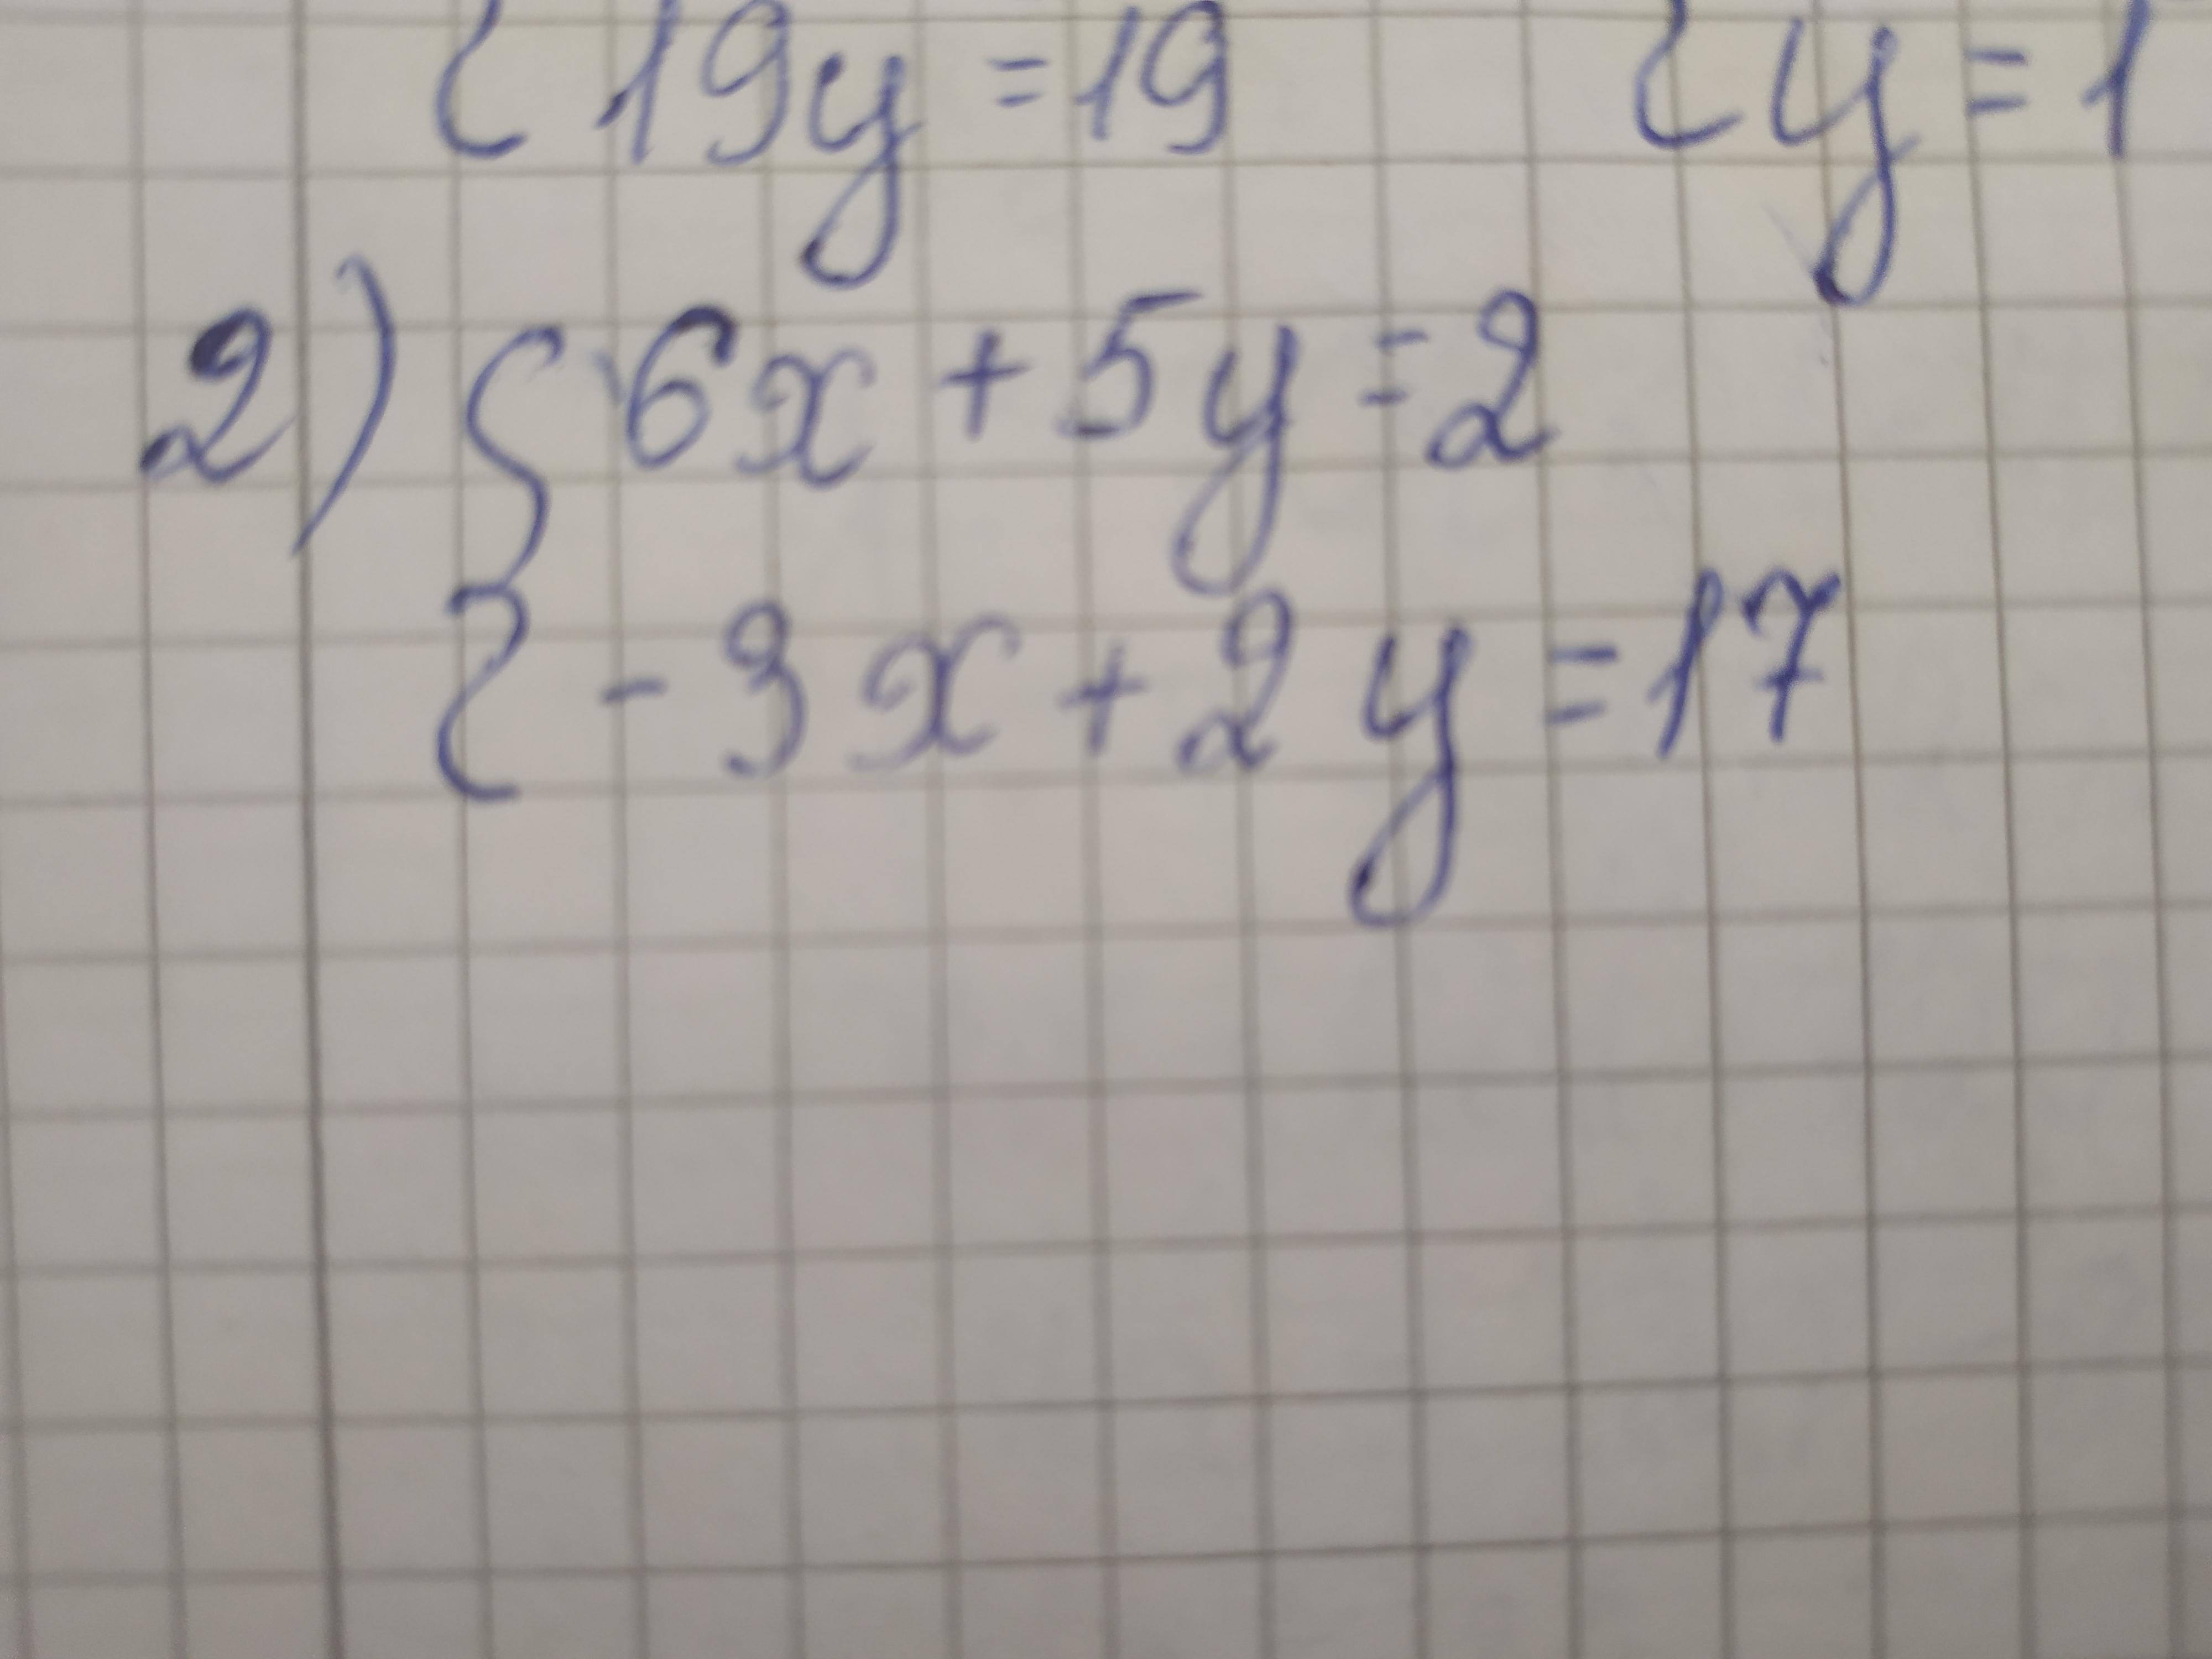 {19y = 19 {y = 1
2) {6x + 5y = 2
{-3x + 2y = 17